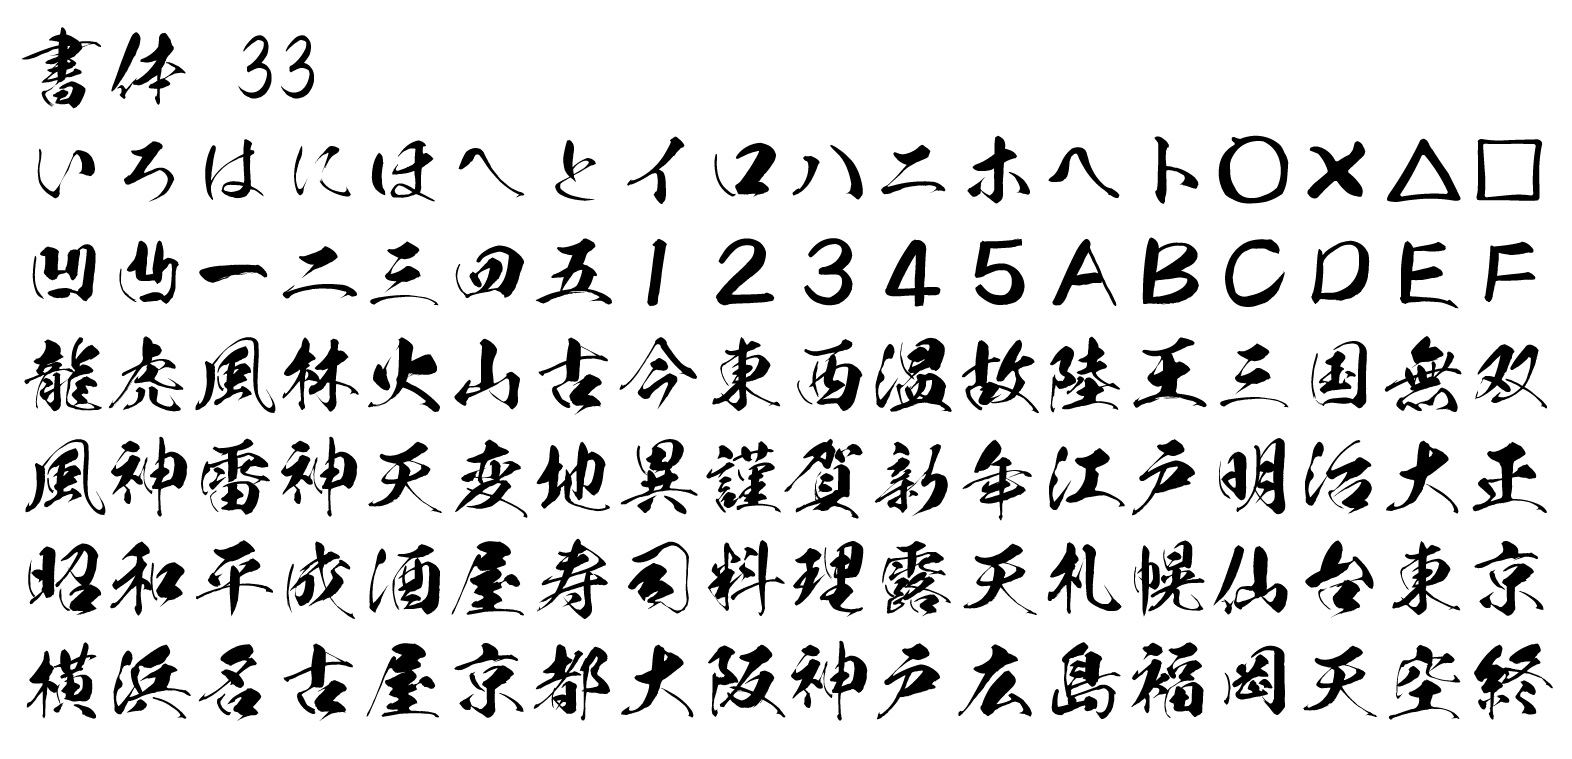 書体 33
いろはにほへとイロハニホヘト○×△□
凹凸一二三四五12345ABCDEF
龍虎風林火山古今東西温故陸王三国無双
風神雷神天変地異謹賀新年江戸明治大正
昭和平成酒屋寿司料理露天札幌仙台東京
横浜名古屋京都大阪神戸広島福岡天空終